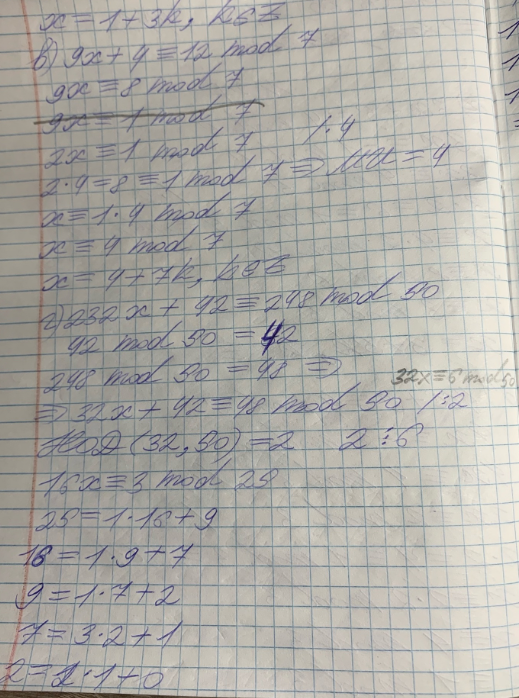 x = 1 + 3k, k ∈ Z
в) 9x + 4 ≡ 12 mod 7
9x ≡ 8 mod 7
9x ≡ 1 mod 7
2x ≡ 1 mod 7 /·4
2·4 = 8 ≡ 1 mod 7 ⇒ = 4
x ≡ 1·4 mod 7
x ≡ 4 mod 7
x = 4 + 7k, k ∈ Z
г) 232x + 42 ≡ 248 mod 50
42 mod 50 = 42
248 mod 50 = 48 ⇒
32x ≡ 6 mod 50
⇒ 32x + 42 ≡ 48 mod 50 /:2
НОД (32, 50) = 2 2 ⋮ 6
16x ≡ 3 mod 25
25 = 1·16 + 9
16 = 1·9 + 7
9 = 1·7 + 2
7 = 3·2 + 1
2 = 2·1 + 0